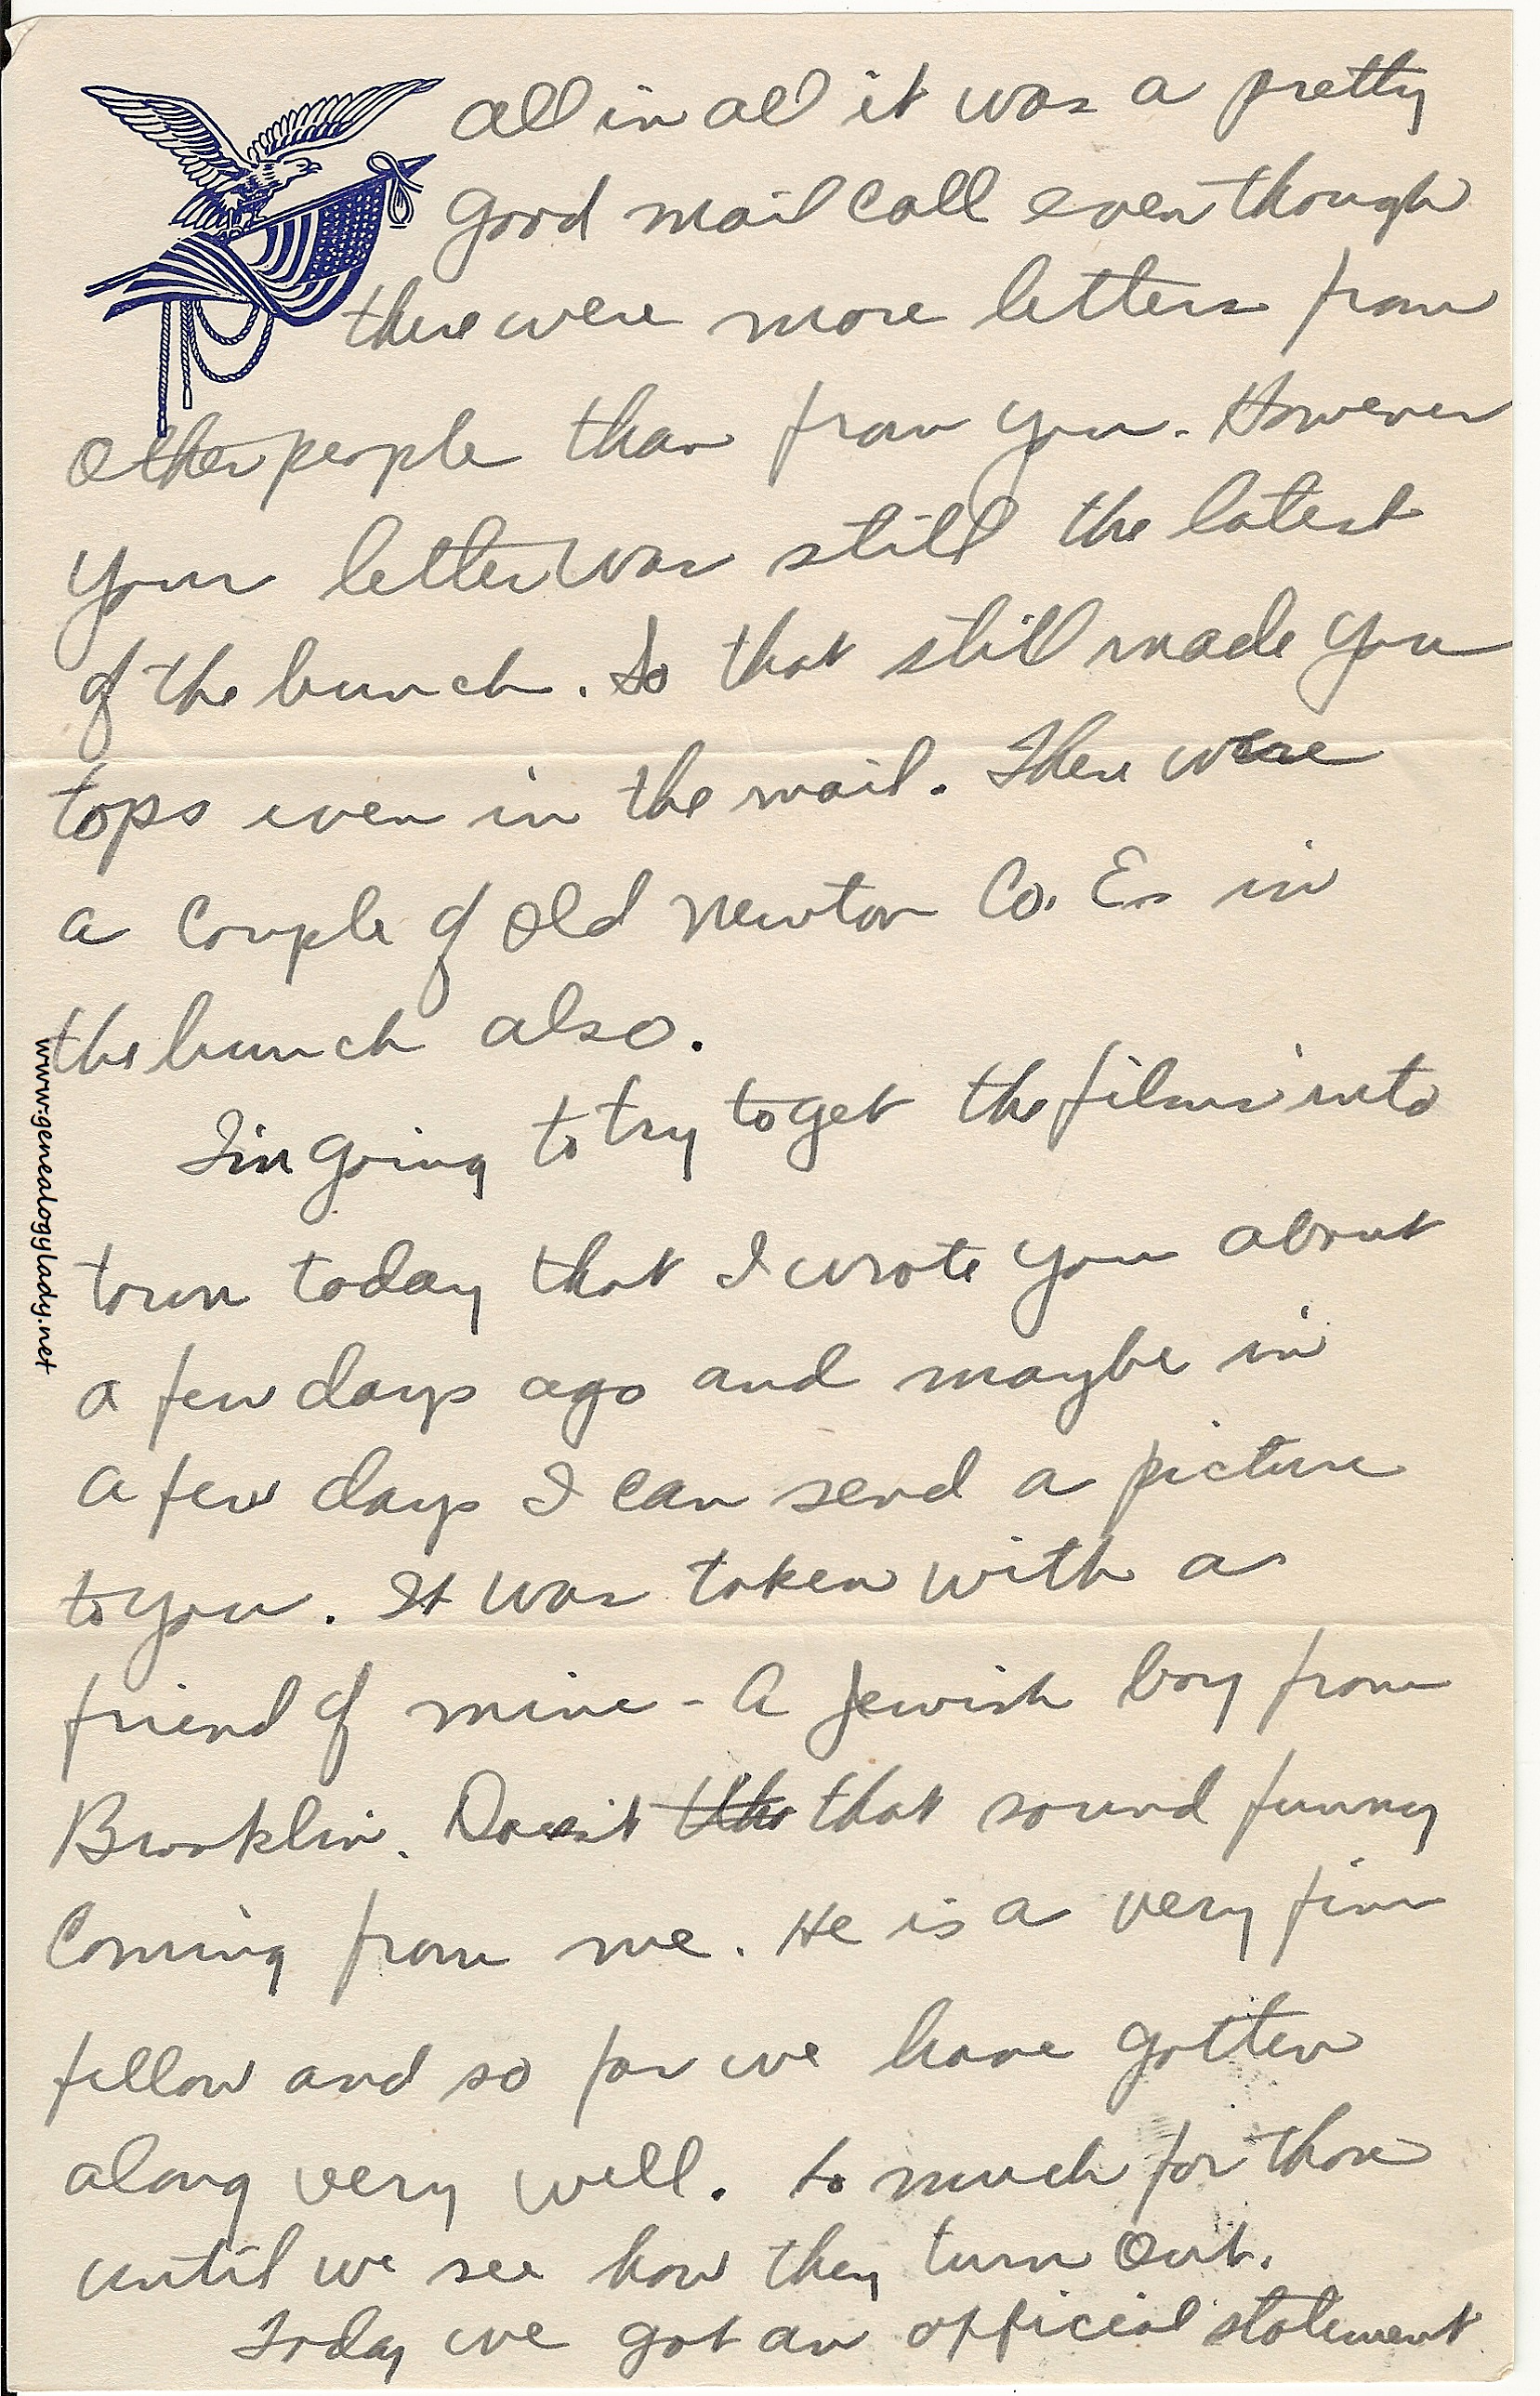 All in all it was a pretty
good mail call even though
there were more letters from
other people than from you. However
your letter was still the latest
of the bunch. So that still made you
tops even in the mail. There were
a couple of old Newton Co. Es in
the bunch also.
I'm going to try to get the films into
town today that I wrote you about
a few days ago and maybe in
a few days I can send a picture
to you. It was taken with a
friend of mine - A Jewish boy from
Brooklin. Doesn't that sound funny
coming from me. He is a very fine
fellow and so far we have gotten
along very well. So much for those
until we see how they turn out.
Today we got an official statement
www.genealogylady.net